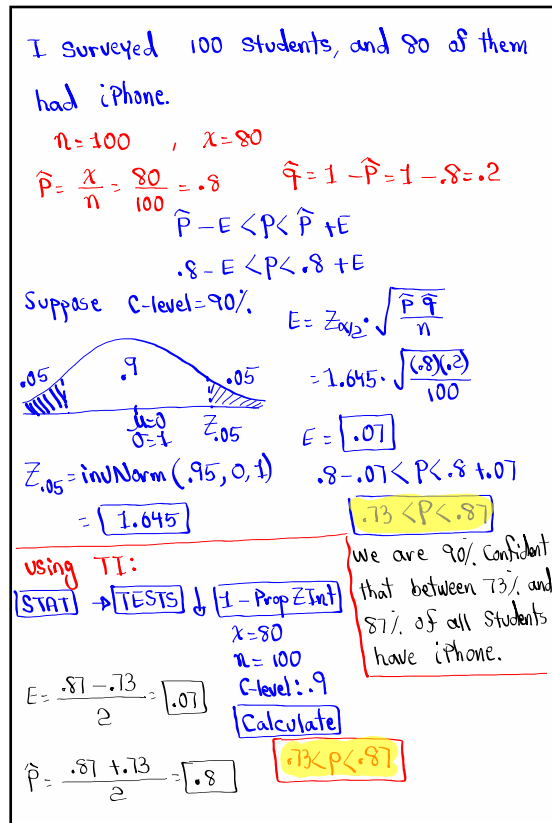 I surveyed 100 students, and 80 of them
had iPhone.
n=100 , x=80
p̂ = x/n = 80/100 = .8    q̂ = 1 - p̂ = 1 - .8 = .2
p̂ - E < P < p̂ + E
.8 - E < P < .8 + E
Suppose C-level = 90%.
E = Zα/2 · √(p̂ q̂ / n)
.05 .9 .05
= 1.645 · √((.8)(.2) / 100)
μ=0
σ=1
Z.05
E = .07
Z.05 = invNorm(.95, 0, 1)
.8 - .07 < P < .8 + .07
= 1.645
.73 < P < .87
using TI:
STAT → TESTS ↓ 1-PropZInt
x = 80
n = 100
C-level: .9
Calculate
.73 < P < .87
we are 90% Confident
that between 73% and
87% of all students
have iPhone.
E = (.87 - .73)/2 = .07
p̂ = (.87 + .73)/2 = .8